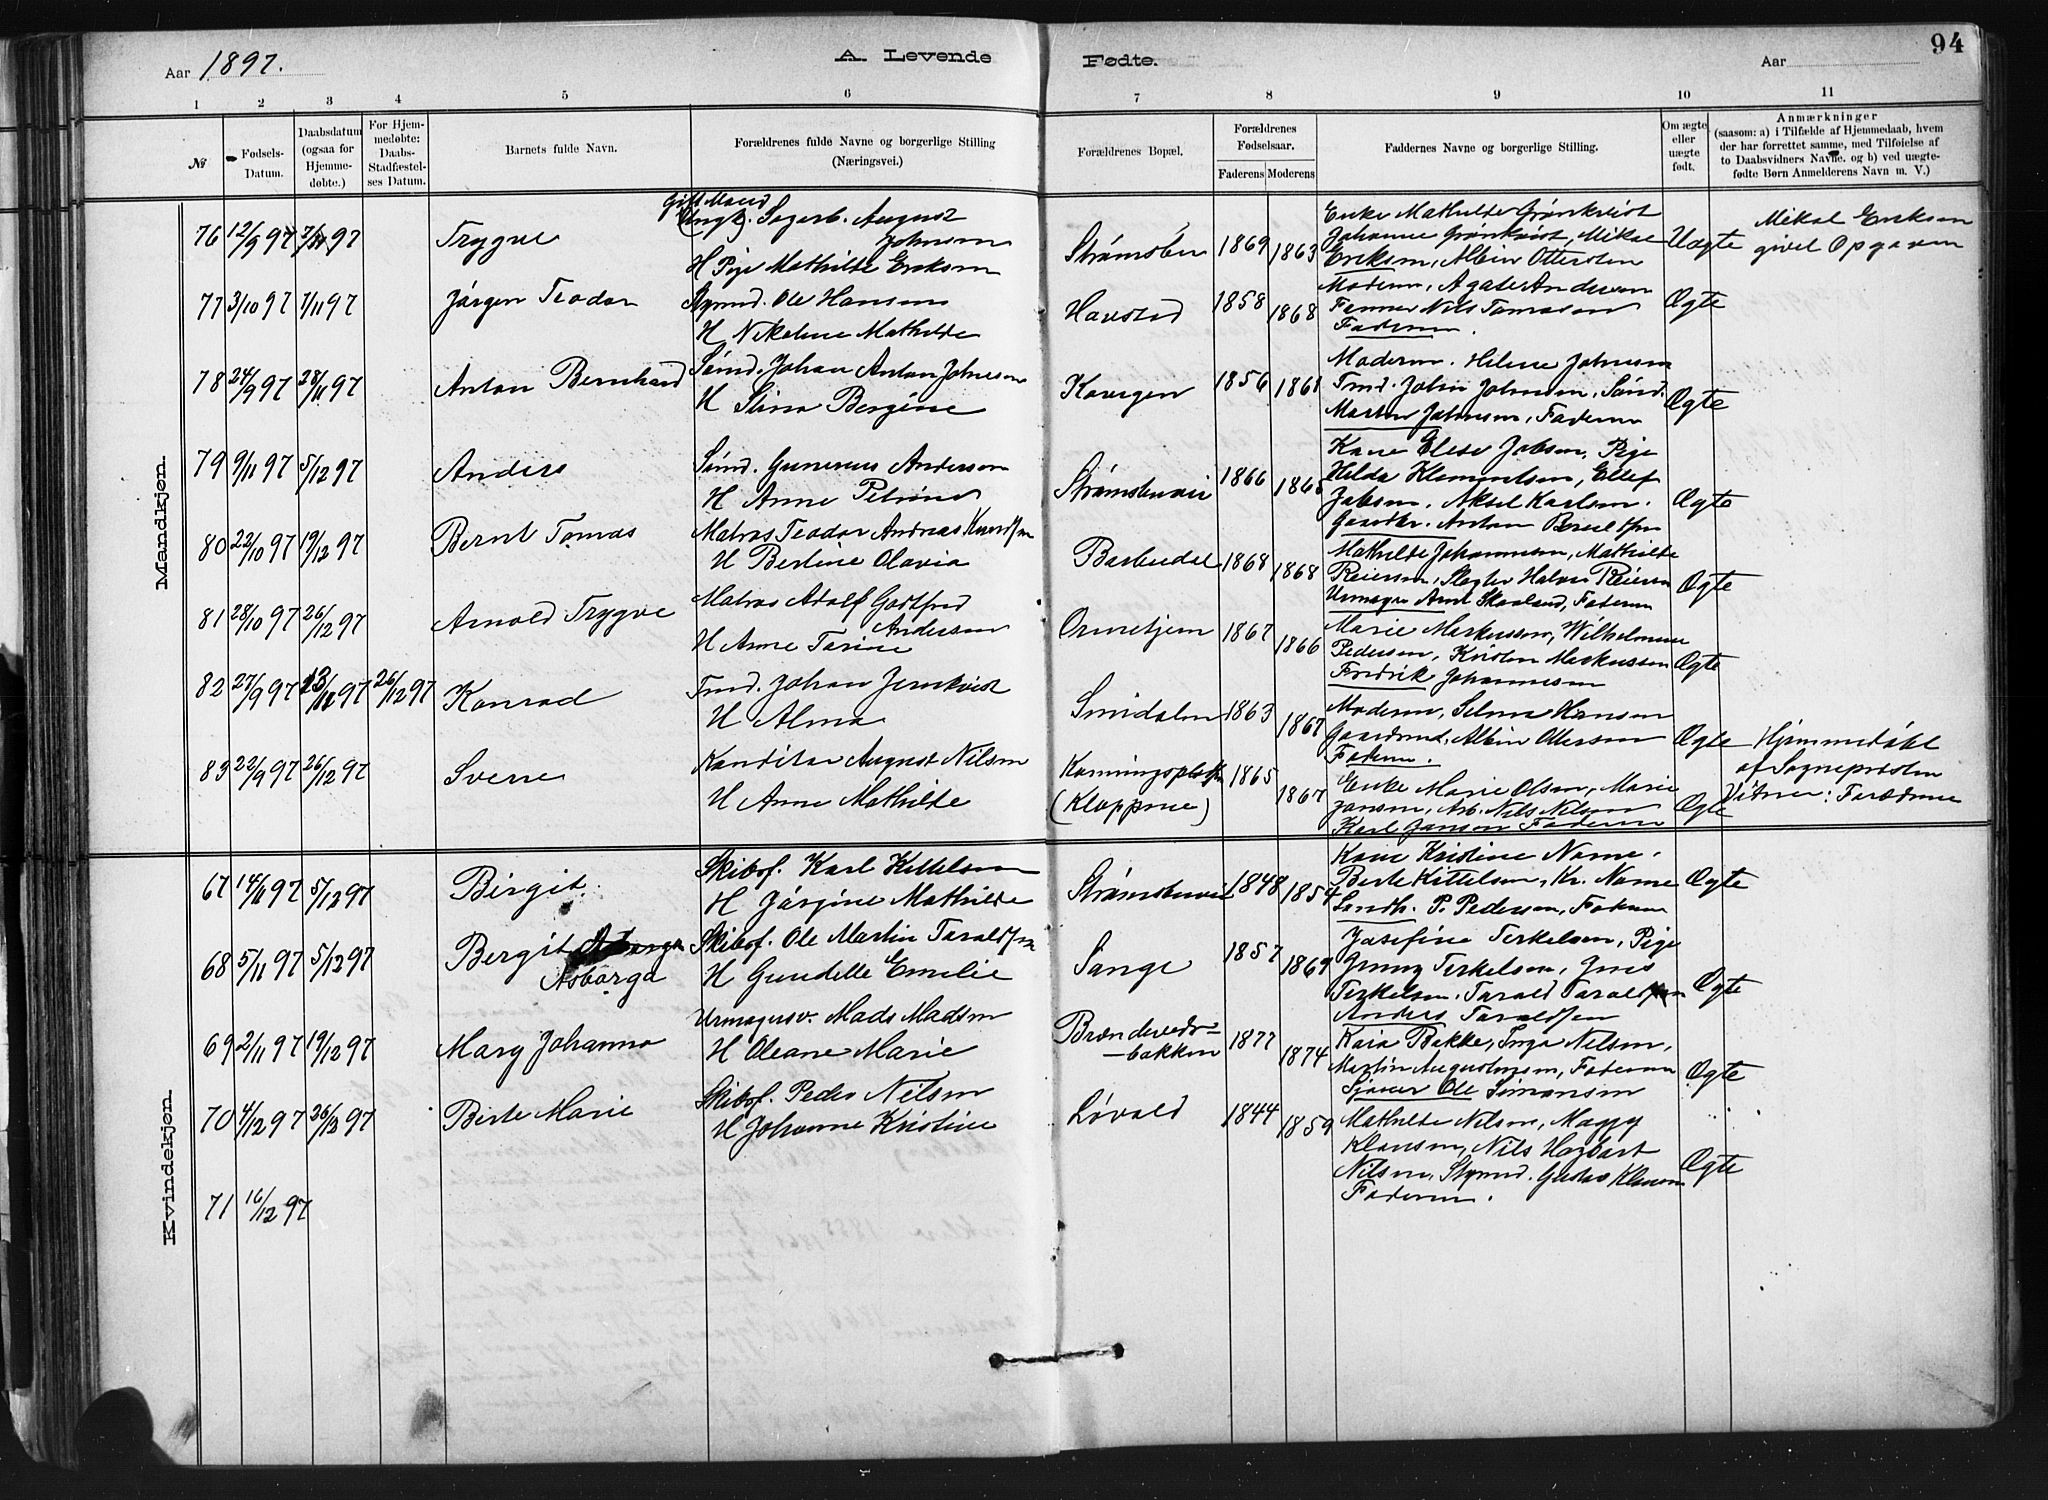 Aar 1897.
A. Levende Fødte.
Aar
94
1 2 3 4 5 6 7 8 9 10 11
№
Fødsels-Datum.
Daabsdatum (ogsaa for Hjemme-døbte.)
For Hjem-medøbte: Daabs-Stadfæstel-ses Datum.
Barnets fulde Navn.
Forældrenes fulde Navne og borgerlige Stilling (Næringsvei.)
Forældrenes Bopæl.
Forældrenes Fødselsaar.
Faderens Moderens
Faddernes Navne og borgerlige Stilling.
Om ægte eller uægte født.
Anmærkninger
(saasom: a) i Tilfælde af Hjemmedaab, hvem
der har forrettet samme, med Tilføielse af
to Daabsvidners Navne. og b) ved uægte-
fødte Børn Anmelderens Navn m. V.)
Mandkjøn.
76 12/9 97 7/11 97 Trygve
Gift Mand
(Ungk). Sagarb. August
Johnsen
H Pige Mathilde Eriksen
Strømsbu 1869 1863
Enke Mathilde Grønkvist
Johanne Grønkvist, Mikal
Eriksen, Albin Ottersten
Uægte
Mikal Eriksen
givet Opgaven
77 3/10 97 7/11 97 Jørgen Teodor
Styrmd. Ole Hansen
H Nikoline Mathilde
Havstad 1858 1868
Moderen, Agate Andersen
Tømmer Nils Tomassen
Faderen.
Ægte
78 24/9 97 28/11 97 Anton Bernhard
Sømd. Johan Anton Johnsen
H Stina Bergine
Kavegen 1856 1861
Moderen. Helene Johnsen
Tmd. John Johnsen, Sømd.
Martin Johnsen, Faderen
Ægte
79 9/11 97 5/12 97 Anders
Sømd. Gunerius Anderson
H Anne Petrine
Strømsbuvei 1866 1865
Kane Elise Jabsen, Pige
Hilda Klementsen, Ellef
Jabsen, Aksel Karlsen.
Gaardbr. Anton Berntsen
Ægte
80 22/10 97 19/12 97 Bernt Tomas
Matros Teodor Andreas Knudsen
H Bertine Olavia
Barbudal 1868 1868
Mathilde Johannesen, Mathilde
Reiersen, Slagter Halvor Reiersen
Urmager Arnt Skaaland, Faderen
Ægte
81 28/10 97 26/12 97 Arnold Trygve
Matros Adolf Godtfred
Andersen
H Anne Tarine
Ormetjern 1867 1866
Marie Markussen, Wilhelmine
Pedersen, Kristen Markussen
Fredrik Johannesen
Ægte
82 27/9 97 13/11 97 26/12 97 Konrad
Tmd. Johan Jernkvist
H Alma
Smidalen 1863 1867
Moderen, Selma Hansen
Gaardmd. Albin Olersen
Faderen.
Ægte
Hjemmedøbt
af Sognepresten
Vidner: Forældrene
83 22/9 97 26/12 97 Sverre
Konditor August Nilsen
H Anne Mathilde
(Kloppene) 1865 1867
Enke Marie Olsen, Marie
Jansen, Arb. Nils Nilsen
Karl Jansen Faderen
Ægte
Kvindekjøn.
67 14/11 97 5/12 97 Birgit
Skibsf. Karl Kittelsen
H Jørgine Mathilde
Strømsbuvei 1848 1854
Kaia Kristine Name.
Berte Kittelsen, Kr. Name
Sandh. P. Pedersen, Faderen
Ægte
68 5/11 97 5/12 97 Bergit
Asborga
Skibsf. Ole Martin Taraldsen
H Gundelle Emelie
Songe 1857 1869
Josefine Terkelsen, Pige
Jenny Terkelsen, Jens
Terkelsen. Tarald Taraldsen
Anders Taraldsen
Ægte
69 2/11 97 19/12 97 Mary Johanna
Urmagersv. Mads Madsen
H Oleane Marie
Brændeveds-
-bakken 1877 1874
Kaia Bakke, Inga Nilsen,
Martin Augustinsen, Faderen
Sjøuer Ole Simonsen
Ægte
70 4/12 97 26/12 97 Berte Marie
Skibsf. Peder Nilsen
H Johanne Kristine
Løvold 1844 1859
Mathilde Nilsen, Maggy
Klausen, Nils Hagbart
Nilsen, Styrmd. Gustav Klausen
Faderen.
Ægte
71 16/12 97